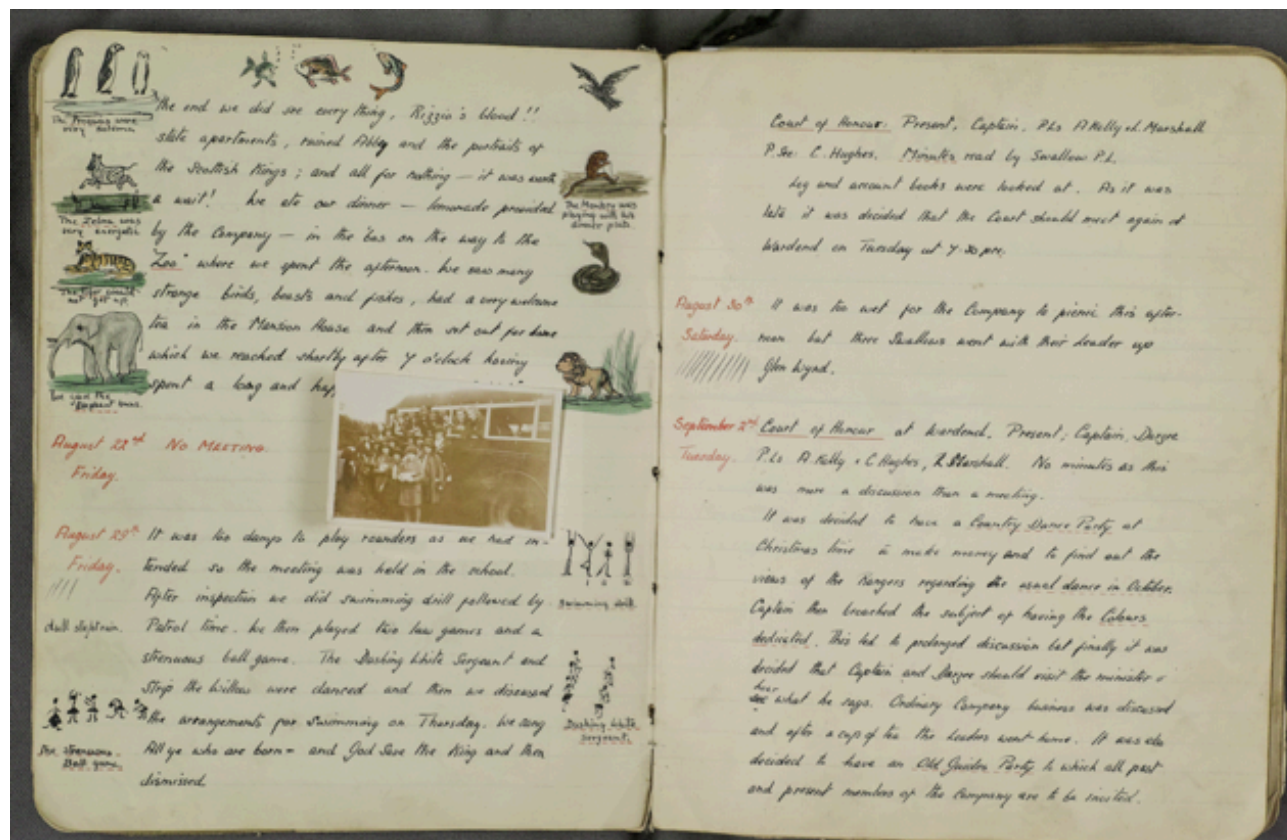 The Penguins were
very solemn.
The Zebra was
very energetic
The Tiger would
not get up.
We said the
Elephant twice.
the end we did see everything, Rizzio's blood!!
state apartments, ruined Abbey and the portraits of
the Scottish Kings; and all for nothing — it was worth
a wait! We ate our dinner — lemonade provided
by the Company — in the bus on the way to the
"Zoo" where we spent the afternoon. We saw many
strange birds, beasts and fishes, had a very welcome
tea in the Mansion House and then set out for home
which we reached shortly after 7 o'clock having
spent a long and hap
The Monkey was
playing with his
dinner plate.
August 22nd NO MEETING.
Friday.
August 29th
Friday.
It was too damp to play rounders as we had in-
tended so the meeting was held in the school.
After inspection we did swimming drill followed by
Patrol time. We then played two law games and a
strenuous ball game. The Dashing White Sergeant and
Strip the Willow were danced and then we discussed
the arrangements for swimming on Thursday. We sang
All ye who are born = and God Save the King and then
dismissed
The strenuous
Ball game.
Swimming drill.
Dashing White
Sergeant.
Court of Honour: Present, Captain, P.Ls A Kelly & L. Marshall
P. Sec. C. Hughes. Minutes read by Swallow P.L.
Log and account books were looked at. As it was
late it was decided that the Court should meet again at
Wardend on Tuesday at 7-30 pm.
August 30th
Saturday.
It was too wet for the Company to picnic this after-
noon but three Swallows went with their Leader up
Glen Wynd.
September 2nd
Tuesday.
Court of Honour at Wardend, Present; Captain,
P.Ls A Kelly & C Hughes, L Marshall. No minutes as this
was more a discussion than a meeting.
It was decided to have a Country Dance Party at
Christmas time to make money and to find out the
views of the Rangers regarding the usual dance in October.
Captain then broached the subject of having the Colours
dedicated. This led to prolonged discussion but finally it was
decided that Captain and should visit the minister &
hear what he says. Ordinary Company business was discussed
and after a cup of tea the Leaders went home. It was also
decided to have an Old Guides Party to which all past
and present members of the Company are to be invited.